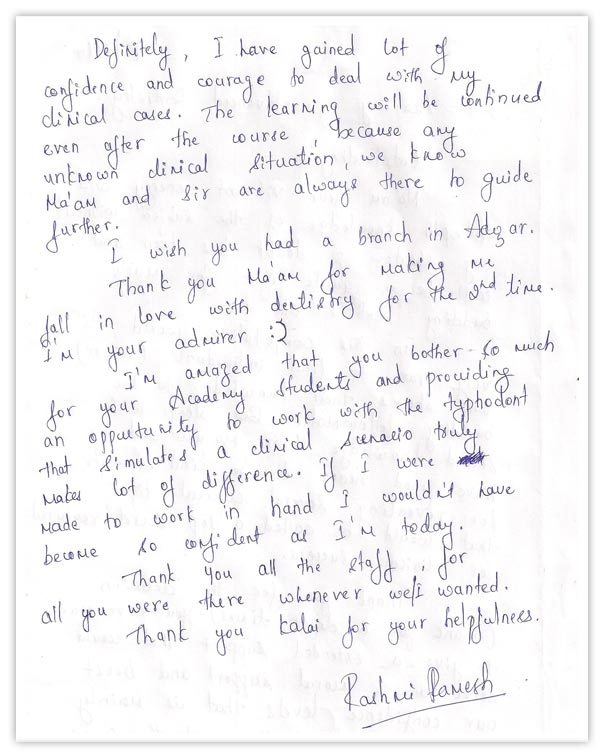 Definitely, I have gained lot of
confidence and courage to deal with my
clinical cases. The learning will be continued
even after the course, because any
unknown clinical situation, we know
Ma'am and Sir are always there to guide
further.
I wish you had a branch in Adyar.
Thank you Ma'am for making me
fall in love with dentistry for the 2nd time.
I'm your admirer :)
I'm amazed that you bother so much
for your Academy students and providing
an oppurtunity to work with the typhodont
that simulates a clinical scenario truly
makes lot of difference. If I were
made to work in hand I wouldn't have
become so confident as I'm today.
Thank you all the staff, for
all you were there whenever we/I wanted.
Thank you Kalai for your helpfulness.
Rashmi Ramesh